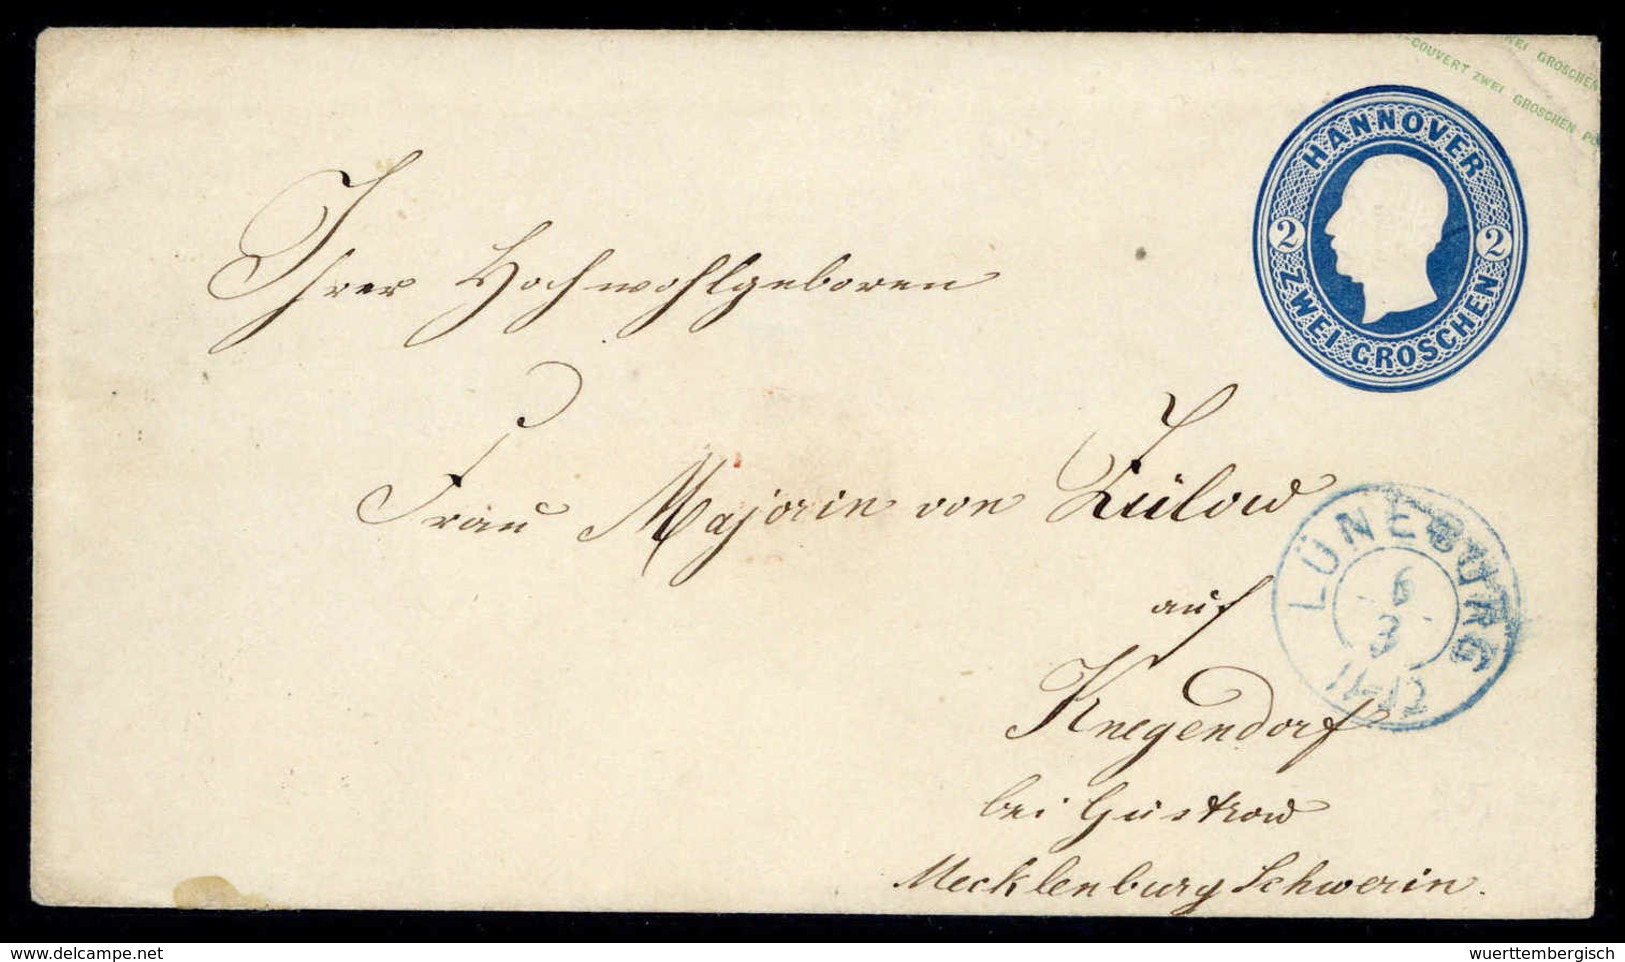 WEI GROSCHEN
-COUVERT ZWEI GROSCHEN PO
HANNOVER
2 2
ZWEI GROSCHEN
Ihrer Hochwohlgeboren
Frau Majorin von Zülow
auf
Knegendorf
bei Güstrow
Mecklenburg Schwerin.
LÜNEBURG
6
3
11-12
© delcampe.net
wuerttembergisch